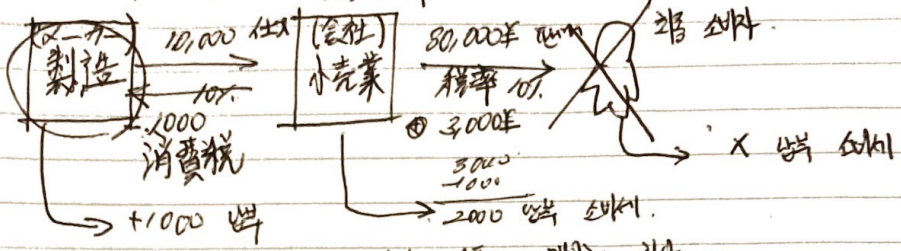 (メーカー)
製造
10,000 仕入
10%
1000
消費税
+1000 납부
(会社)
小売業
30,000¥ 판매
税率 10%
⊕ 3,000¥
3000
-1000
2000 납부 소비세.
최종 소비자.
X 납부 소비세